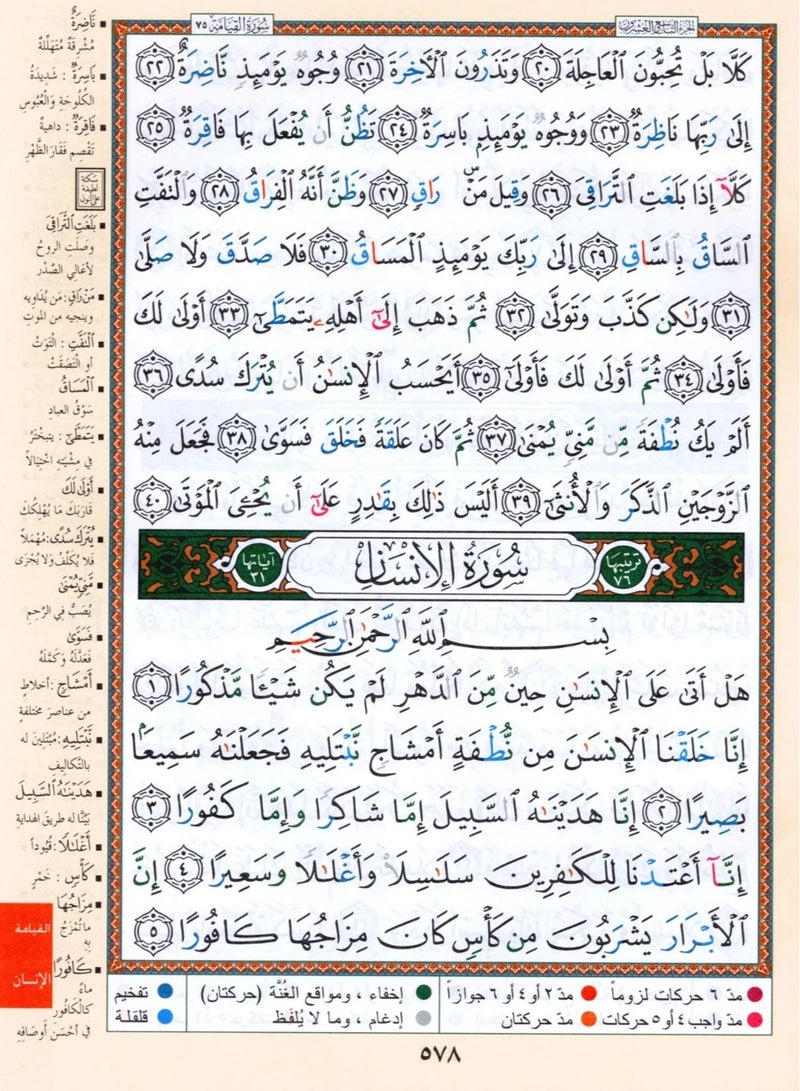 الجزء التاسع والعشرون
سورة القيامة ٧٥
كَلَّا بَلْ تُحِبُّونَ ٱلْعَاجِلَةَ ٢٠ وَتَذَرُونَ ٱلْأَخِرَةَ ٢١ وُجُوهٌ يَوْمَئِذٍ نَّاضِرَةٌ ٢٢
إِلَىٰ رَبِّهَا نَاظِرَةٌ ٢٣ وَوُجُوهٌ يَوْمَئِذٍۭ بَاسِرَةٌ ٢٤ تَظُنُّ أَن يُفْعَلَ بِهَا فَاقِرَةٌ ٢٥
كَلَّآ إِذَا بَلَغَتِ ٱلتَّرَاقِىَ ٢٦ وَقِيلَ مَنْۜ رَاقٍ ٢٧ وَظَنَّ أَنَّهُ ٱلْفِرَاقُ ٢٨ وَٱلْتَفَّتِ
ٱلسَّاقُ بِٱلسَّاقِ ٢٩ إِلَىٰ رَبِّكَ يَوْمَئِذٍ ٱلْمَسَاقُ ٣٠ فَلَا صَدَّقَ وَلَا صَلَّىٰ
٣١ وَلَٰكِن كَذَّبَ وَتَوَلَّىٰ ٣٢ ثُمَّ ذَهَبَ إِلَىٰٓ أَهْلِهِۦ يَتَمَطَّىٰٓ ٣٣ أَوْلَىٰ لَكَ
فَأَوْلَىٰ ٣٤ ثُمَّ أَوْلَىٰ لَكَ فَأَوْلَىٰٓ ٣٥ أَيَحْسَبُ ٱلْإِنسَٰنُ أَن يُتْرَكَ سُدًى ٣٦
أَلَمْ يَكُ نُطْفَةً مِّن مَّنِىٍّ يُمْنَىٰ ٣٧ ثُمَّ كَانَ عَلَقَةً فَخَلَقَ فَسَوَّىٰ ٣٨ فَجَعَلَ مِنْهُ
ٱلزَّوْجَيْنِ ٱلذَّكَرَ وَٱلْأُنثَىٰٓ ٣٩ أَلَيْسَ ذَٰلِكَ بِقَٰدِرٍ عَلَىٰٓ أَن يُحْۦِىَ ٱلْمَوْتَىٰ ٤٠
ترتيبها ٧٦
سُورَةُ الإِنسَانِ
آياتها ٣١
بِسْمِ ٱللَّهِ ٱلرَّحْمَٰنِ ٱلرَّحِيمِ
هَلْ أَتَىٰ عَلَى ٱلْإِنسَٰنِ حِينٌ مِّنَ ٱلدَّهْرِ لَمْ يَكُن شَيْـًٔا مَّذْكُورًا ١
إِنَّا خَلَقْنَا ٱلْإِنسَٰنَ مِن نُّطْفَةٍ أَمْشَاجٍ نَّبْتَلِيهِ فَجَعَلْنَٰهُ سَمِيعًۢا
بَصِيرًا ٢ إِنَّا هَدَيْنَٰهُ ٱلسَّبِيلَ إِمَّا شَاكِرًا وَإِمَّا كَفُورًا ٣
إِنَّآ أَعْتَدْنَا لِلْكَٰفِرِينَ سَلَٰسِلَا۟ وَأَغْلَٰلًا وَسَعِيرًا ٤ إِنَّ
ٱلْأَبْرَارَ يَشْرَبُونَ مِن كَأْسٍ كَانَ مِزَاجُهَا كَافُورًا ٥
نَّاضِرَةٌ
مُشْرِقَةٌ مُتَهَلِّلَةٌ
بَاسِرَةٌ : شديدةُ
الكُلُوحَةِ وَالْعُبُوسِ
فَاقِرَةٌ : داهيةٌ
تَقْصِم فَقَارَ الظَّهْرِ
سكتة
لطيفة
على النون
بَلَغَتِ ٱلتَّرَاقِىَ
وصَلَت الروحُ
لأعَالي الصَّدْر
مَنْ رَاقٍ: مَن يُدَاوِيه
وينجيه من الموت
ٱلْتَفَّتِ : الْتَوَتْ
أو الْتَصَقَتْ
ٱلْمَسَاقُ
سَوْقُ العبادِ
يَتَمَطَّىٰٓ : يتبخْتَرُ
في مِشْيَتِه اخْتِيَالاً
أَوْلَىٰ لَكَ
قَارَبَكَ مَا يُهْلِكُكَ
يُتْرَكَ سُدًى: مُهْمَلاً
فلا يُكَلَّفُ وَلَا يُجْزَى
مَّنِىٍّ يُمْنَىٰ
يُصَبُّ فِي الرَّحِمِ
فَسَوَّىٰ
فَعَدَّلَهُ وَكَمَّلَهُ
أَمْشَاجٍ : أخلاطٍ
من عناصرَ مختلفةٍ
نَّبْتَلِيهِ : مُبْتَلِينَ له
بالتَّكاليفِ
هَدَيْنَٰهُ ٱلسَّبِيلَ
بَيَّنَّا له طريقَ الهداية
أَغْلَٰلًا : قُيُوداً
كَأْسٍ : خَمْرٍ
مِزَاجُهَا
مَا تُمْزَجُ
بِهِ
كَافُورًا
مَاءً
كالكَافُورِ
في أحْسَن أوصَافِهِ
القيامة
الإنسان
مدّ ٦ حركات لزوماً
مدّ ٢ أو ٤ أو ٦ جوازاً
إخفاء ، ومواقع الغُنَّة (حركتان)
تفخيم
مدّ واجب ٤ أو ٥ حركات
مدّ حركتان
إدغام ، وما لا يُلفَظ
قلقلة
٥٧٨